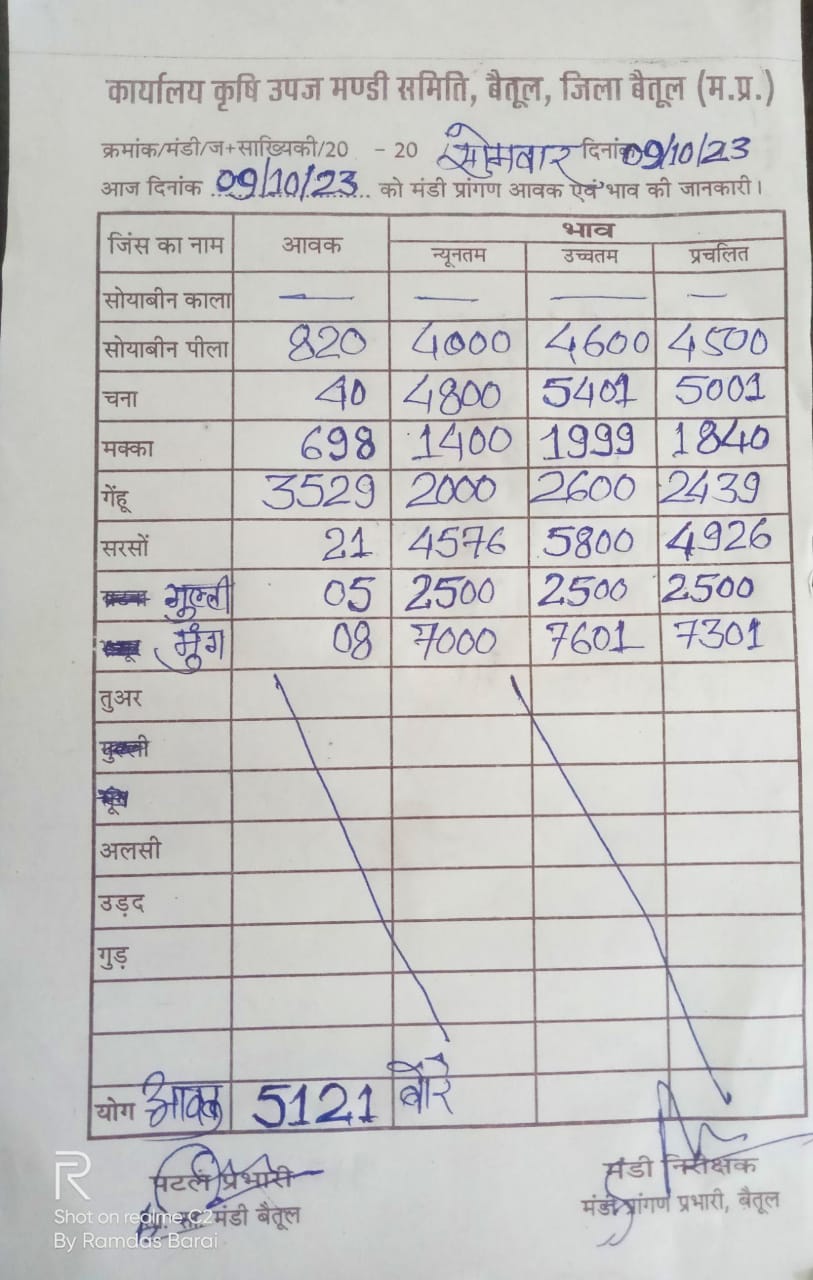 कार्यालय कृषि उपज मण्डी समिति, बैतूल, जिला बैतूल (म.प्र.)
क्रमांक/मंडी/ज+सांख्यिकी/20 - 20 सोमवार दिनांक 09/10/23
आज दिनांक 09/10/23 को मंडी प्रांगण आवक एवं भाव की जानकारी।
जिंस का नाम आवक भाव
न्यूनतम उच्चतम प्रचलित
सोयाबीन काला — — — —
सोयाबीन पीला 820 4000 4600 4500
चना 40 4800 5401 5001
मक्का 698 1400 1999 1840
गेंहू 3529 2000 2600 2439
सरसों 21 4576 5800 4926
गुल्ली 05 2500 2500 2500
मुंग 08 7000 7601 7301
तुअर
अलसी
उड़द
गुड़
योग आवक 5121 बोरे
पटल प्रभारी मंडी निरीक्षक
मंडी बैतूल मंडी प्रांगण प्रभारी, बैतूल
Shot on realme C2
By Ramdas Barai